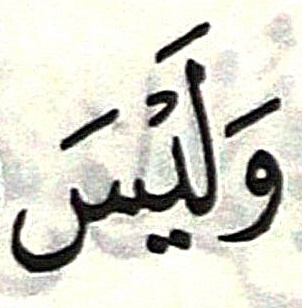 وَلَيْسَ